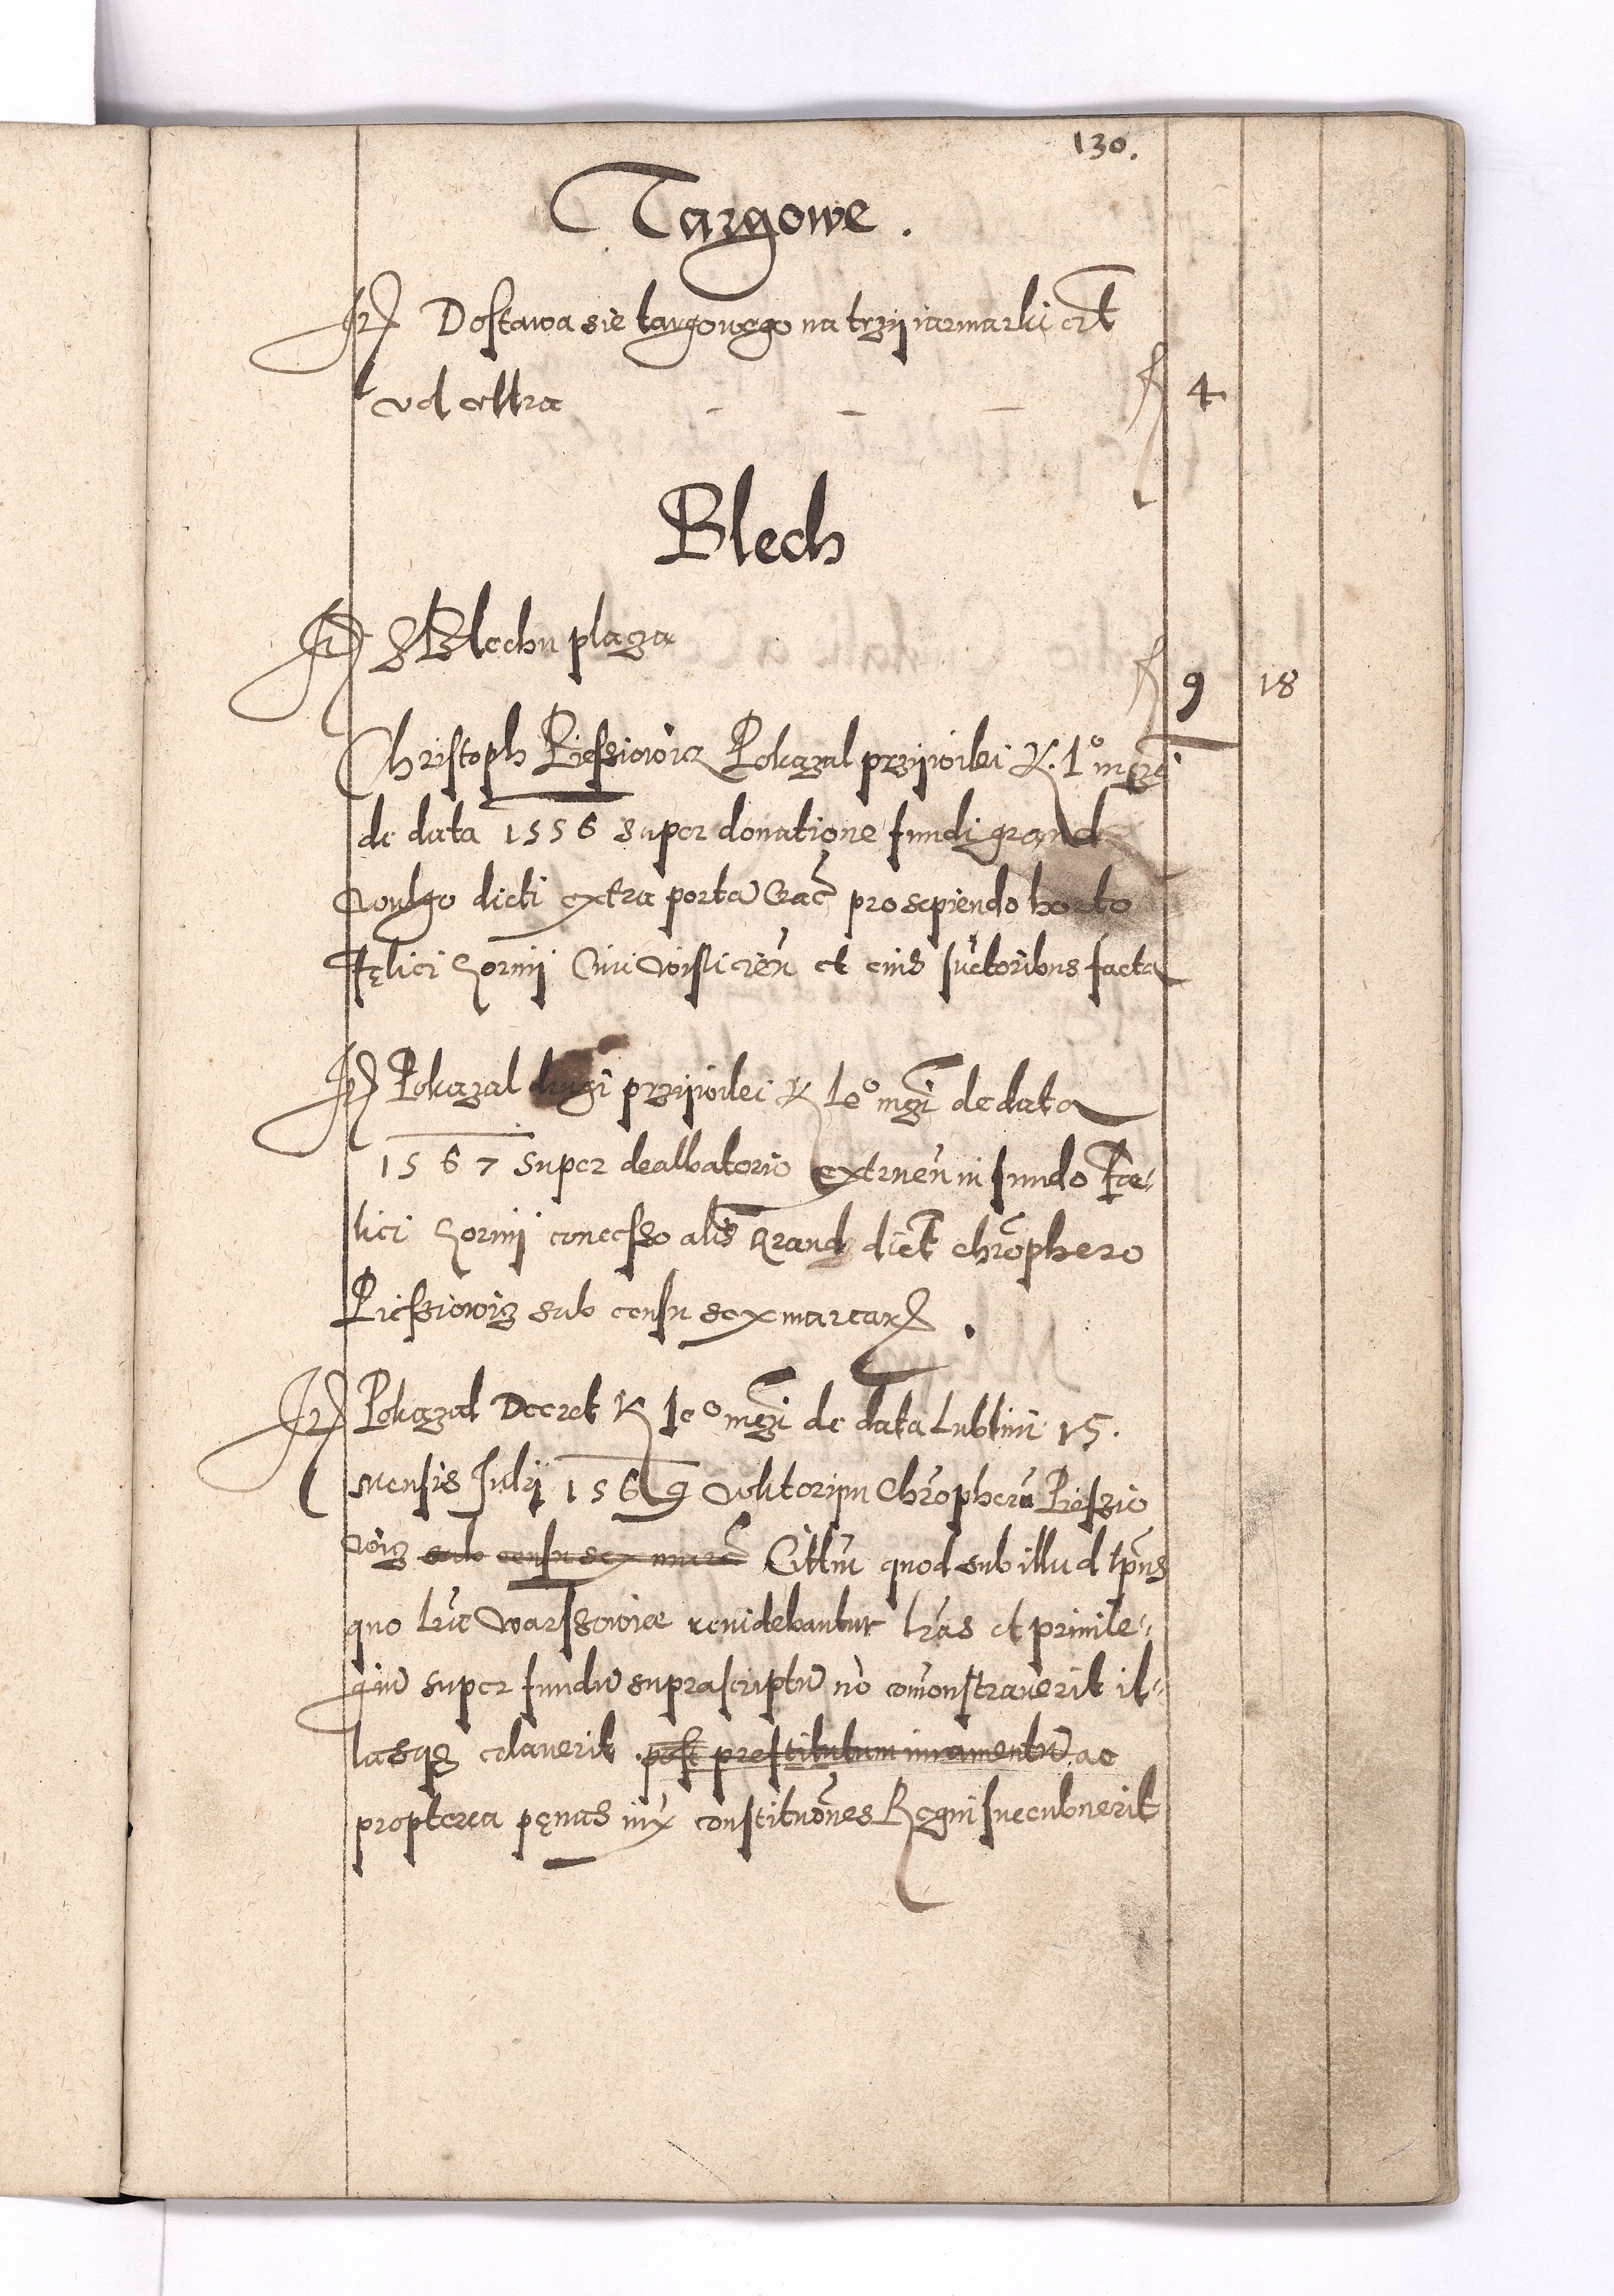 130.
Targowe.
Itẽ Dostawa sie targowego na trzy iarmarki cit
vel ultra fl 4
Blech
Itẽ Z Blechu plaza fl 9 18
Christoph Piessiowicz Pokazal przijwilei K. 1° mczi
de data 1556 super donatione fundi grand
voulgo dicti extra portã Crac̃ pro sepiendo horto
Felici Hornij Ciui visliciẽn et eius suc̃toribus facta
Itẽ Pokazal drugi przijwilei K Je° mczi de data
1567 super dealbatorio extruẽn in fundo Fae-
lici Hornij concesso alĩs Grand dict̃ chr̃ophero
Piessiowiz sub censu sex marcarũ.
Itẽ Pokazal Decret K Je° mczi de data Lublini 15.
mensis Julij 1569 Chr̃opherũ Pieszio
wiz sub censu sex marc̃ Citt̃m quod sub illud tp̃us
quo lr̃ae Warssowiae reuidebantur lr̃as et priuile-
giũ super fundũ suprascriptũ nõ com̃onstrauerit il-
lasqз celauerit post prestitutum iuramentũ ac
propterea pęnas iux̃ constituõnes Regni succubuerit